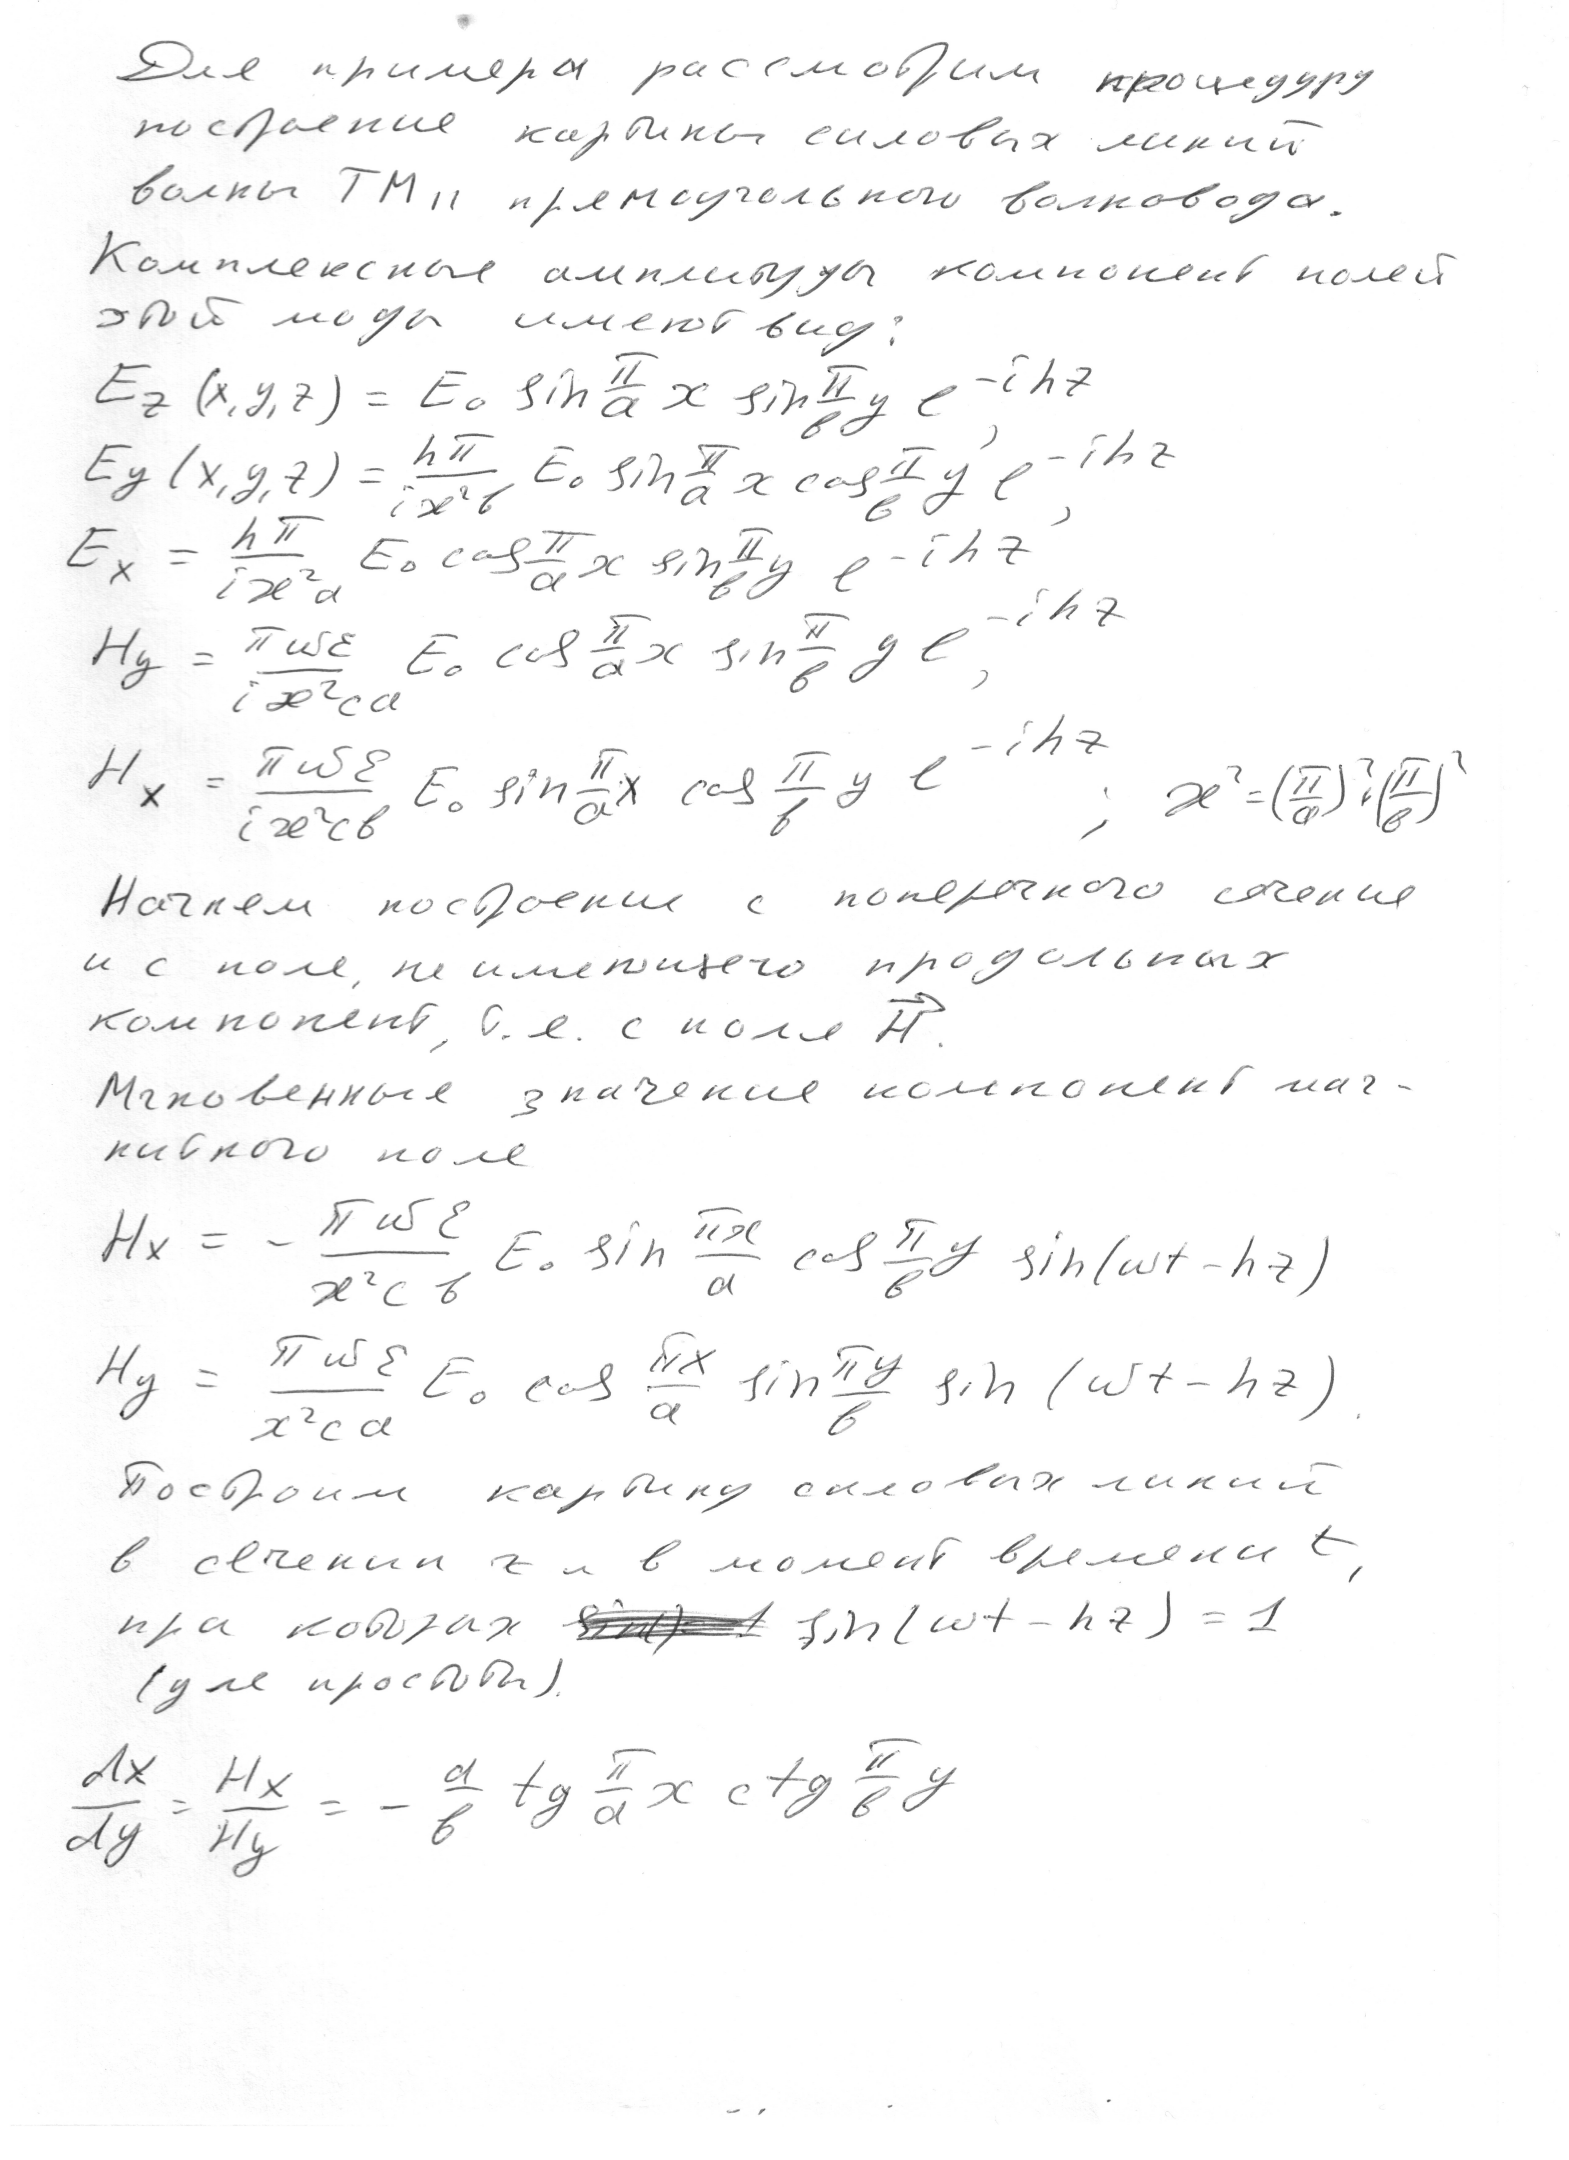 Для примера рассмотрим процедуру
построения картины силовых линий
волны TM₁₁ прямоугольного волновода.
Комплексные амплитуды компонент полей
этой моды имеют вид:
E_z (x,y,z) = E₀ sin π/a x sin π/b y e^{-ihz},
E_y (x,y,z) = hπ/(iϰ²b) E₀ sin π/a x cos π/b y e^{-ihz},
E_x = hπ/(iϰ²a) E₀ cos π/a x sin π/b y e^{-ihz}
H_y = πωε/(iϰ²ca) E₀ cos π/a x sin π/b y e^{-ihz},
H_x = πωε/(iϰ²cb) E₀ sin π/a x cos π/b y e^{-ihz}; ϰ² = (π/a)² + (π/b)²
Начнем построение с поперечного сечения
и с поля, не имеющего продольных
компонент, т.е. с поля H⃗.
Мгновенные значения компонент маг-
нитного поля
H_x = - πωε/(ϰ²cb) E₀ sin πx/a cos π/b y sin(ωt - hz)
H_y = πωε/(ϰ²ca) E₀ cos πx/a sin πy/b sin (ωt - hz).
Построим картину силовых линий
в сечении z и в момент времени t,
при которых sin(ωt - hz) = 1
(для простоты).
dx/dy = H_x/H_y = - a/b tg π/a x ctg π/b y